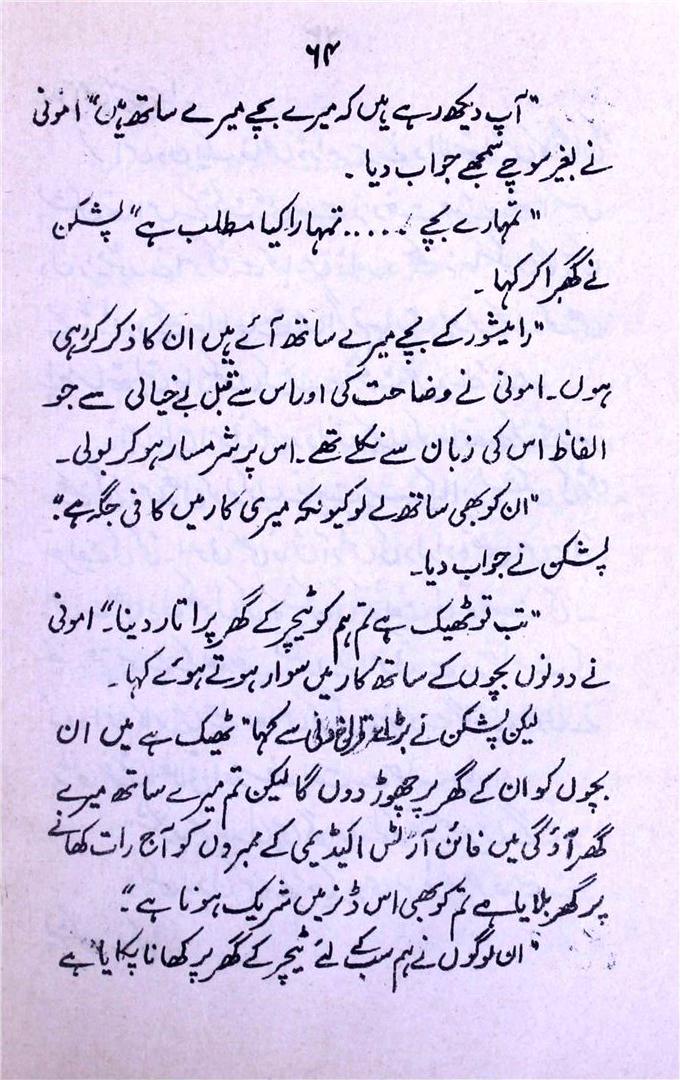 ۶۴
"آپ دیکھ رہے ہیں کہ میرے بچے میرے ساتھ ہیں" امونی
نے بغیر سوچے سمجھے جواب دیا ۔
"تمہارے بچے ...... تمہارا کیا مطلب ہے" پشکن
نے گھبرا کر کہا ۔
"رامیشور کے بچے میرے ساتھ آئے ہیں ان کا ذکر کر رہی
ہوں ۔ امونی نے وضاحت کی اور اس سے قبل بے خیالی سے جو
الفاظ اس کی زبان سے نکلے تھے ۔ اس پر شرمسار ہو کر بولی ۔
"ان کو بھی ساتھ لے لو کیونکہ میری کار میں کافی جگہ ہے"
پشکن نے جواب دیا ۔
"تب تو ٹھیک ہے تم ہم کو ٹیچر کے گھر پر اتار دینا ۔" امونی
نے دونوں بچوں کے ساتھ کار میں سوار ہوتے ہوئے کہا ۔
لیکن پشکن نے بڑی سے کہا" ٹھیک ہے میں ان
بچوں کو ان کے گھر پر چھوڑ دوں گا لیکن تم میرے ساتھ میرے
گھر آؤگی میں فائن آرٹس اکیڈیمی کے ممبروں کو آج رات کھانے
پر گھر بلایا ہے تم کو بھی اس ڈنر میں شریک ہونا ہے"
"ان لوگوں نے ہم سب کے لئے ٹیچر کے گھر پر کھانا پکایا ہے